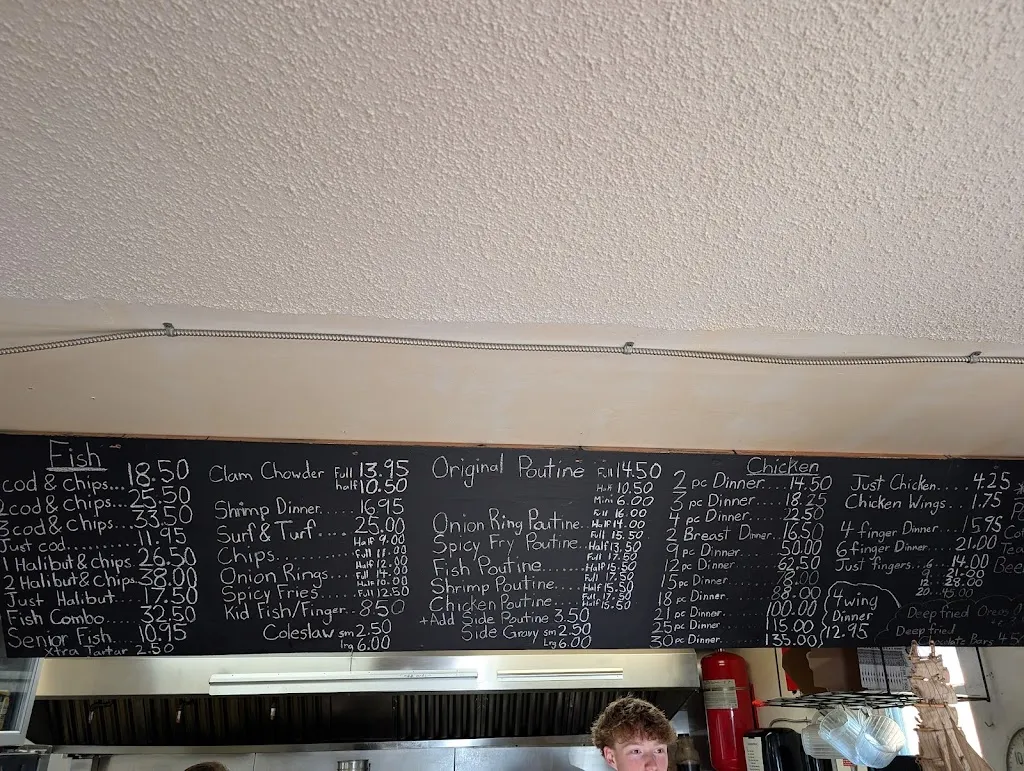 Fish
cod & chips... 18.50
2 cod & chips... 25.50
3 cod & chips.... 33.50
Just cod.... 11.95
1 Halibut & chips. 26.50
2 Halibut & chips. 38.00
Just Halibut.... 17.50
Fish Combo.... 32.50
Senior Fish.... 10.95
Xtra Tartar 2.50
Clam Chowder Full 13.95
half 10.50
Shrimp Dinner.... 16.95
Surf & Turf.... 25.00
Chips... Half 9.00
Full 11.00
Onion Rings... Half 12.00
Full 14.00
Spicy Fries... Half 10.00
Full 12.50
Kid Fish/Finger.. 8.50
Coleslaw sm 2.50
lrg 6.00
Original Poutine Full 14.50
Half 10.50
Mini 6.00
Onion Ring Poutine... Full 16.00
Half 14.00
Spicy Fry Poutine... Full 15.50
Half 13.50
Fish Poutine.... Full 17.50
Half 15.50
Shrimp Poutine... Full 17.50
Half 15.50
Chicken Poutine... Full 17.50
Half 15.50
+Add Side Poutine 3.50
Side Gravy sm 2.50
Lrg 6.00
Chicken
2 pc Dinner.... 14.50
3 pc Dinner.... 18.25
4 pc Dinner.... 22.50
2 Breast Dinner... 16.50
9 pc Dinner.... 50.00
12 pc Dinner.... 62.50
15 pc Dinner....
18 pc Dinner.... 88.00
21 pc Dinner.... 100.00
25 pc Dinner.... 115.00
30 pc Dinner.... 135.00
Just Chicken.... 4.25
Chicken Wings... 1.75
4 finger Dinner... 15.95
6 finger Dinner... 21.00
Just fingers... 6 14.00
12
28.00
20. 45.00
4 wing
Dinner
12.95
Deep fried Oreos
Deep fried
Bars 4.5